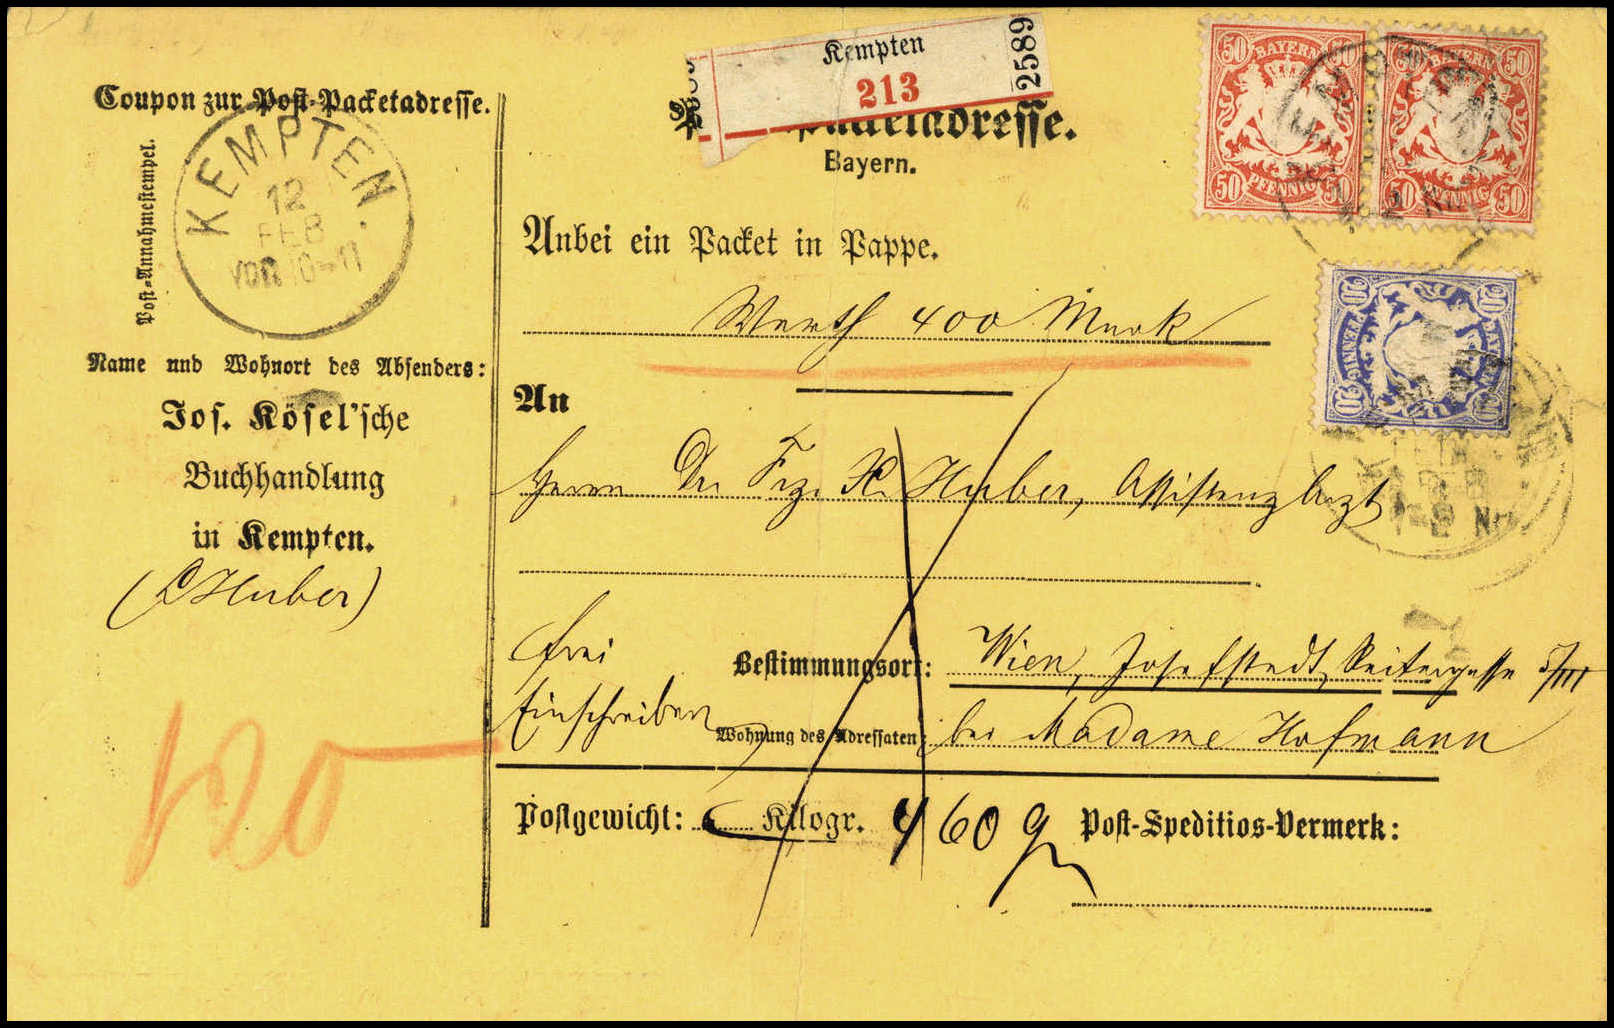 Coupon zur Post-Packetadresse.
Post-Annahmestempel.
KEMPTEN
12
FEB
VOR 10-11
Name und Wohnort des Absenders:
Jos. Kösel'sche
Buchhandlung
in Kempten.
(Huber)
120
Kempten
213
2589
Packetadresse.
Bayern.
50 BAYERN 50
50 PFENNIG 50
BAYERN 50
50 PFENNIG 50
20 BAYERN 20
20 PFENNIG 20
Anbei ein Packet in Pappe.
Werth 400 Mark
An
Herrn Dr. Frz. X. Huber, Assistenzarzt
frei
Einschreiben
Bestimmungsort: Wien, Josefstadt, 5/III
Wohnung des Adressaten: bei Madame Hofmann
Postgewicht: Kilogr. 460 g
Post-Speditios-Vermerk: